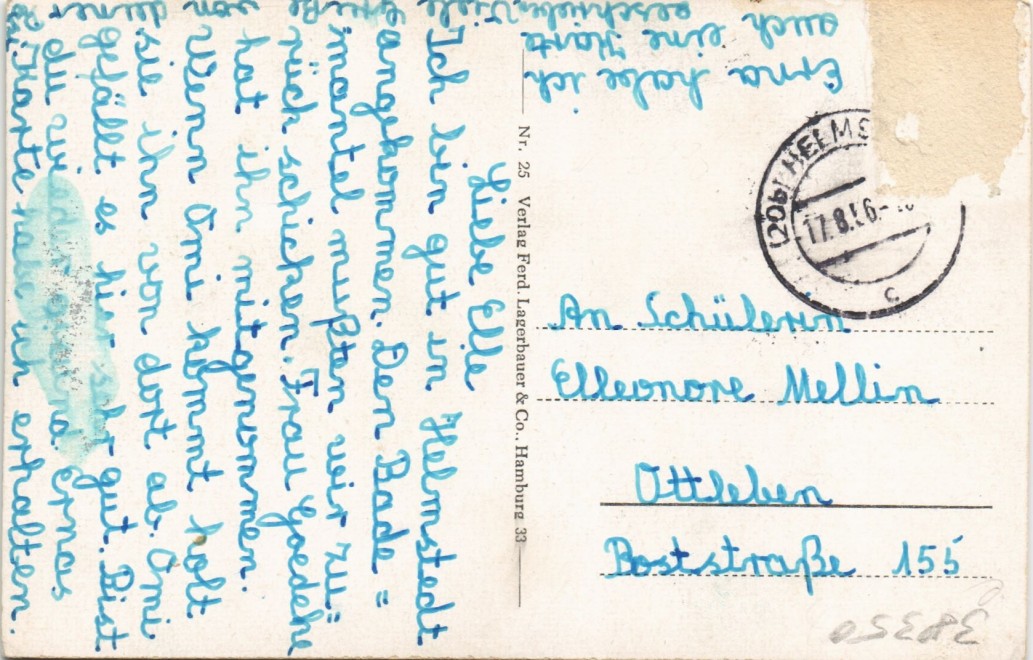 Liebe Elle
Ich bin gut in Helmstedt
angekommen. Den Bade =
mantel mußten wir zu=
rück schicken. Frau Goedeke
hat ihn mitgenommen.
Wenn Omi kommt holt
sie ihn von dort ab. Omi
gefällt es hier sehr gut. Bist
du wieder gesund. Ernas
Karte habe ich erhalten.
Erna habe ich
auch eine Karte
geschrieben. Viele Grüße von deiner
Nr. 25 Verlag Ferd. Lagerbauer & Co., Hamburg 33
(20b) HELMS
17.8.56
c
An Schülerin
Elleonore Mellin
Ottleben
Poststraße 155
38350